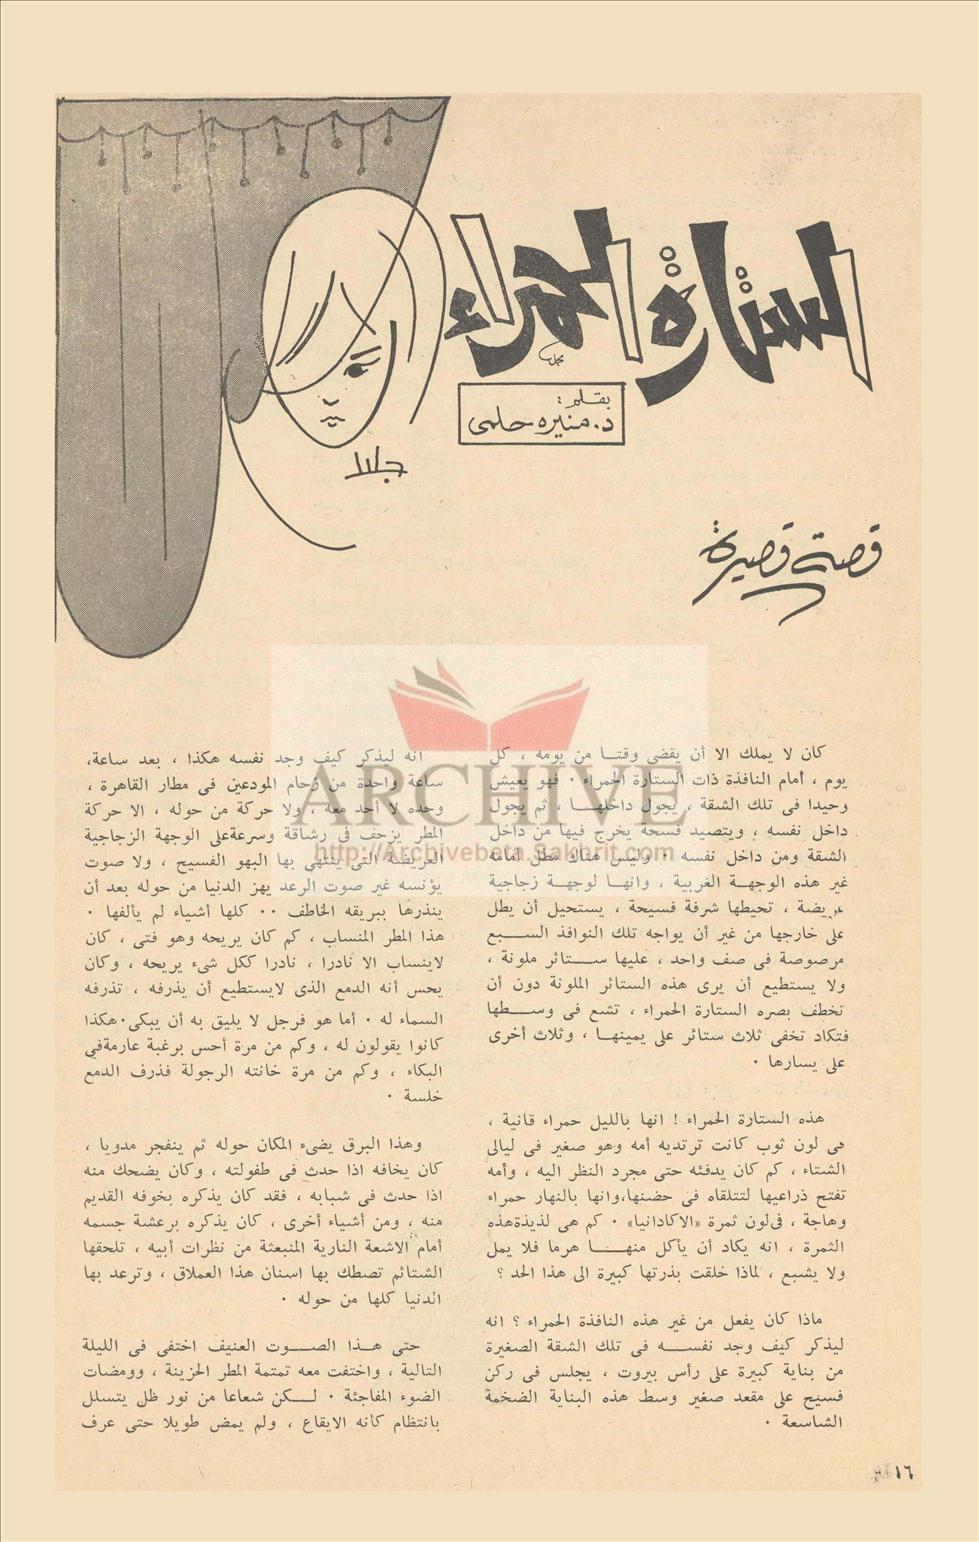 الستارة الحمراء
محمد
بقلم:
د. منيره حلمى
جلال
قصة قصيرة
ARCHIVE
http://Archivebeta.Sakhrit.com
كان لا يملك الا أن يقضى وقتا من يومه ، كل
يوم ، أمام النافذة ذات الستارة الحمراء . فهو يعيش
وحيدا فى تلك الشقة ، يجول داخلها ، ثم يجول
داخل نفسه ، ويتصيد فسحة يخرج فيها من داخل
الشقة ومن داخل نفسه . وليس هناك مطل أمامه
غير هذه الوجهة الغربية ، وانها لوجهة زجاجية
عريضة ، تحيطها شرفة فسيحة ، يستحيل أن يطل
على خارجها من غير أن يواجه تلك النوافذ السبع
مرصوصة فى صف واحد ، عليها ستائر ملونة ،
ولا يستطيع أن يرى هذه الستائر الملونة دون أن
تخطف بصره الستارة الحمراء ، تشع فى وسطها
فتكاد تخفى ثلاث ستائر على يمينها ، وثلاث أخرى
على يسارها .
هذه الستارة الحمراء ! انها بالليل حمراء قانية ،
فى لون ثوب كانت ترتديه أمه وهو صغير فى ليالى
الشتاء ، كم كان يدفئه حتى مجرد النظر اليه ، وأمه
تفتح ذراعيها لتتلقاه فى حضنها،وانها بالنهار حمراء
وهاجة ، فى لون ثمرة «الاكادانيا» . كم هى لذيذة هذه
الثمرة ، انه يكاد أن يأكل منها هرما فلا يمل
ولا يشبع ، لماذا خلقت بذرتها كبيرة الى هذا الحد ؟
ماذا كان يفعل من غير هذه النافذة الحمراء ؟ انه
ليذكر كيف وجد نفسه فى تلك الشقة الصغيرة
من بناية كبيرة على رأس بيروت ، يجلس فى ركن
فسيح على مقعد صغير وسط هذه البناية الضخمة
الشاسعة .
انه ليذكر كيف وجد نفسه هكذا ، بعد ساعة،
ساعة واحدة من زحام المودعين فى مطار القاهرة ،
وحده لا أحد معه ، ولا حركة من حوله ، الا حركة
المطر يزحف فى رشاقة وسرعة على الوجهة الزجاجية
العريضة التى ينتهى بها البهو الفسيح ، ولا صوت
يؤنسه غير صوت الرعد يهز الدنيا من حوله بعد أن
ينذرها ببريقه الخاطف .. كلها أشياء لم يألفها .
هذا المطر المنساب ، كم كان يريحه وهو فتى ، كان
لاينساب الا نادرا ، نادرا ككل شىء يريحه ، وكان
يحس أنه الدمع الذى لايستطيع أن يذرفه ، تذرفه
السماء له . أما هو فرجل لا يليق به أن يبكى.هكذا
كانوا يقولون له ، وكم من مرة أحس برغبة عارمة فى
البكاء ، وكم من مرة خانته الرجولة فذرف الدمع
خلسة .
وهذا البرق يضىء المكان حوله ثم ينفجر مدويا ،
كان يخافه اذا حدث فى طفولته ، وكان يضحك منه
اذا حدث فى شبابه ، فقد كان يذكره بخوفه القديم
منه ، ومن أشياء أخرى ، كان يذكره برعشة جسمه
أمام الاشعة النارية المنبعثة من نظرات أبيه ، تلحقها
الشتائم تصطك بها اسنان هذا العملاق ، وترعد بها
الدنيا كلها من حوله .
حتى هذا الصوت العنيف اختفى فى الليلة
التالية ، واختفت معه تمتمة المطر الحزينة ، وومضات
الضوء المفاجئة . لكن شعاعا من نور ظل يتسلل
بانتظام كأنه الايقاع ، ولم يمض طويلا حتى عرف
١٦